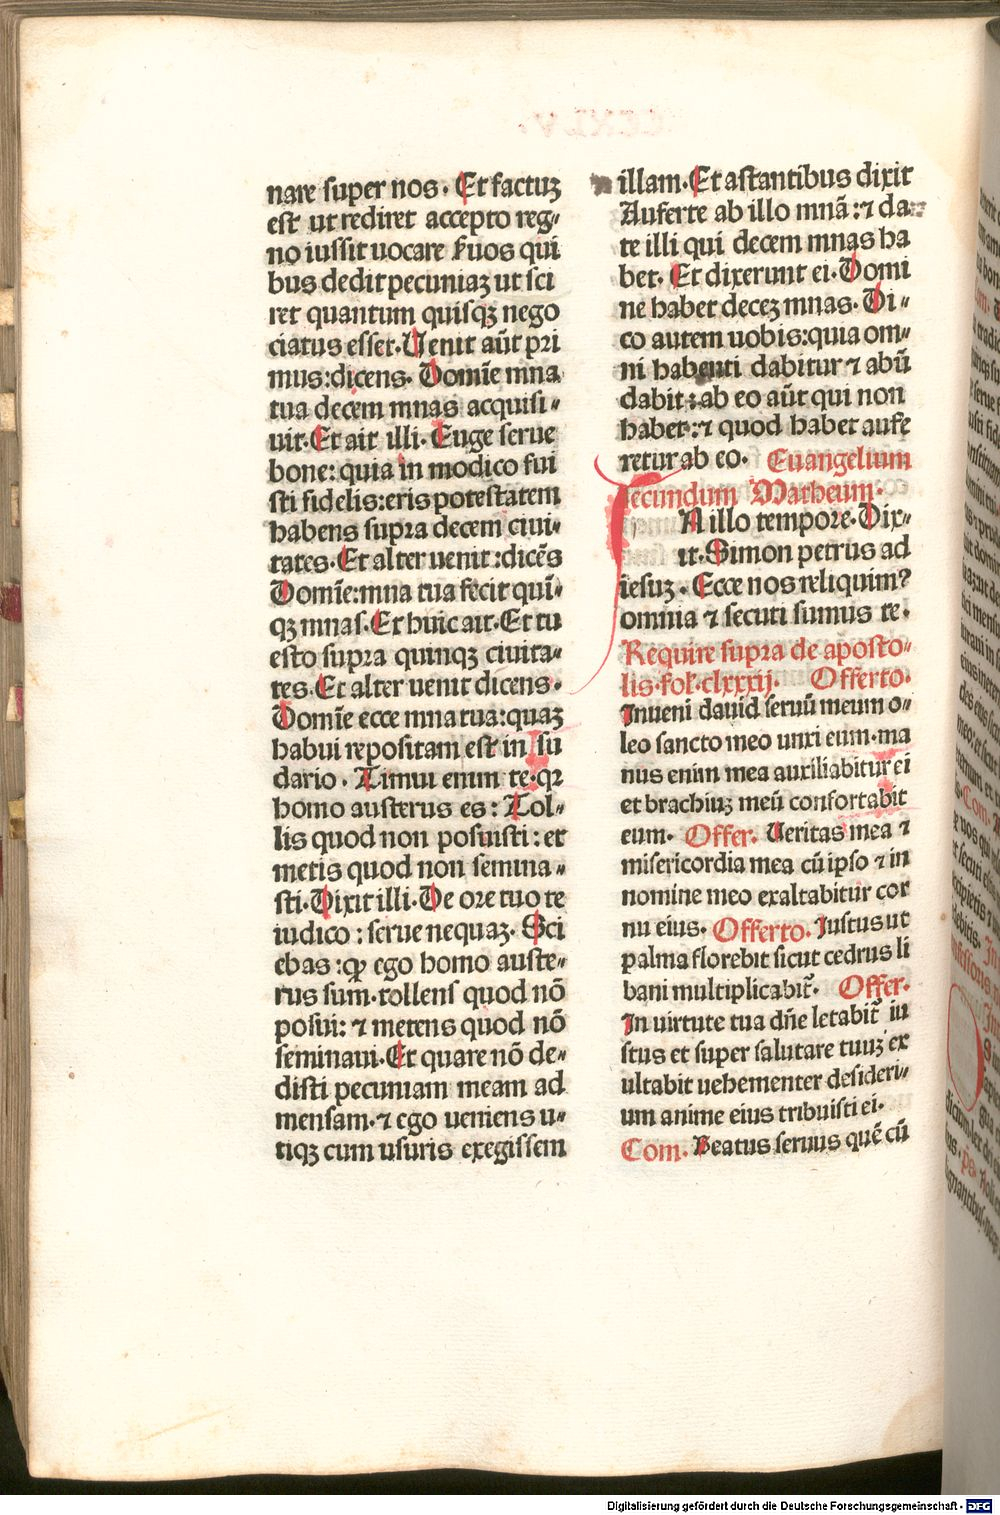 nare super nos. Et factuꝫ
est ut rediret accepto reg-
no iussit uocare ẜuos qui
bus dedit pecuniaꝫ ut sci
ret quantum quisqꝫ nego
ciatus esset. Uenit aūt pri
mus: dicens. Domīe mna
tua decem mnas acquisi-
uit. Et ait illi. Euge serue
bone: quia in modico fui
sti fidelis: eris potestatem
habens supra decem ciui-
tates. Et alter uenit: dicēs
Domīe: mna tua fecit quī-
qꝫ mnas. Et huic ait. Et tu
esto supra quinqꝫ ciuita-
tes. Et alter uenit dicens.
Domīe ecce mna tua: quaꝫ
habui repositam est in su
dario. Timui enim te: qꝛ
homo austerus es: Tol-
lis quod non posuisti: et
metis quod non semina-
sti. Dixit illi. De ore tuo te
iudico: serue nequaꝫ. Sci
ebas: ꝙ ego homo auste-
rus sum. tollens quod nō
posui: ⁊ metens quod nō
seminaui. Et quare nō de-
disti pecuniam meam ad
mensam. ⁊ ego ueniens u-
tiqꝫ cum usuris exegissem
illam. Et astantibus dixit
Auferte ab illo mnā: ⁊ da
te illi qui decem mnas ha
bet. Et dixerunt ei. Domi
ne habet deceꝫ mnas. Di-
co autem uobis: quia om-
ni habenti dabitur ⁊ abū
dabit: ab eo aūt qui non
habet: ⁊ quod habet aufe
retur ab eo. Euangelium
secundum Matheum.
IN illo tempore. Dix-
it. Simon petrus ad
iesuꝫ. Ecce nos reliquim?
omnia ⁊ secuti sumus te.
Require supra de aposto-
lis. fol. clxxxij. Offerto.
Inueni dauid seruū meum o-
leo sancto meo unxi eum. ma
nus enim mea auxiliabitur ei
et brachiuꝫ meū confortabit
eum. Offer. Ueritas mea ⁊
misericordia mea cū ipso ⁊ in
nomine meo exaltabitur cor
nu eius. Offerto. Iustus ut
palma florebit sicut cedrus li
bani multiplicabit̄. Offer.
In uirtute tua dn̄e letabit̄ iu
stus et super salutare tuuꝫ ex
ultabit uehementer desideri-
um anime eius tribuisti ei.
Com. Beatus seruus quē cū
Digitalisierung gefördert durch die Deutsche Forschungsgemeinschaft - DFG